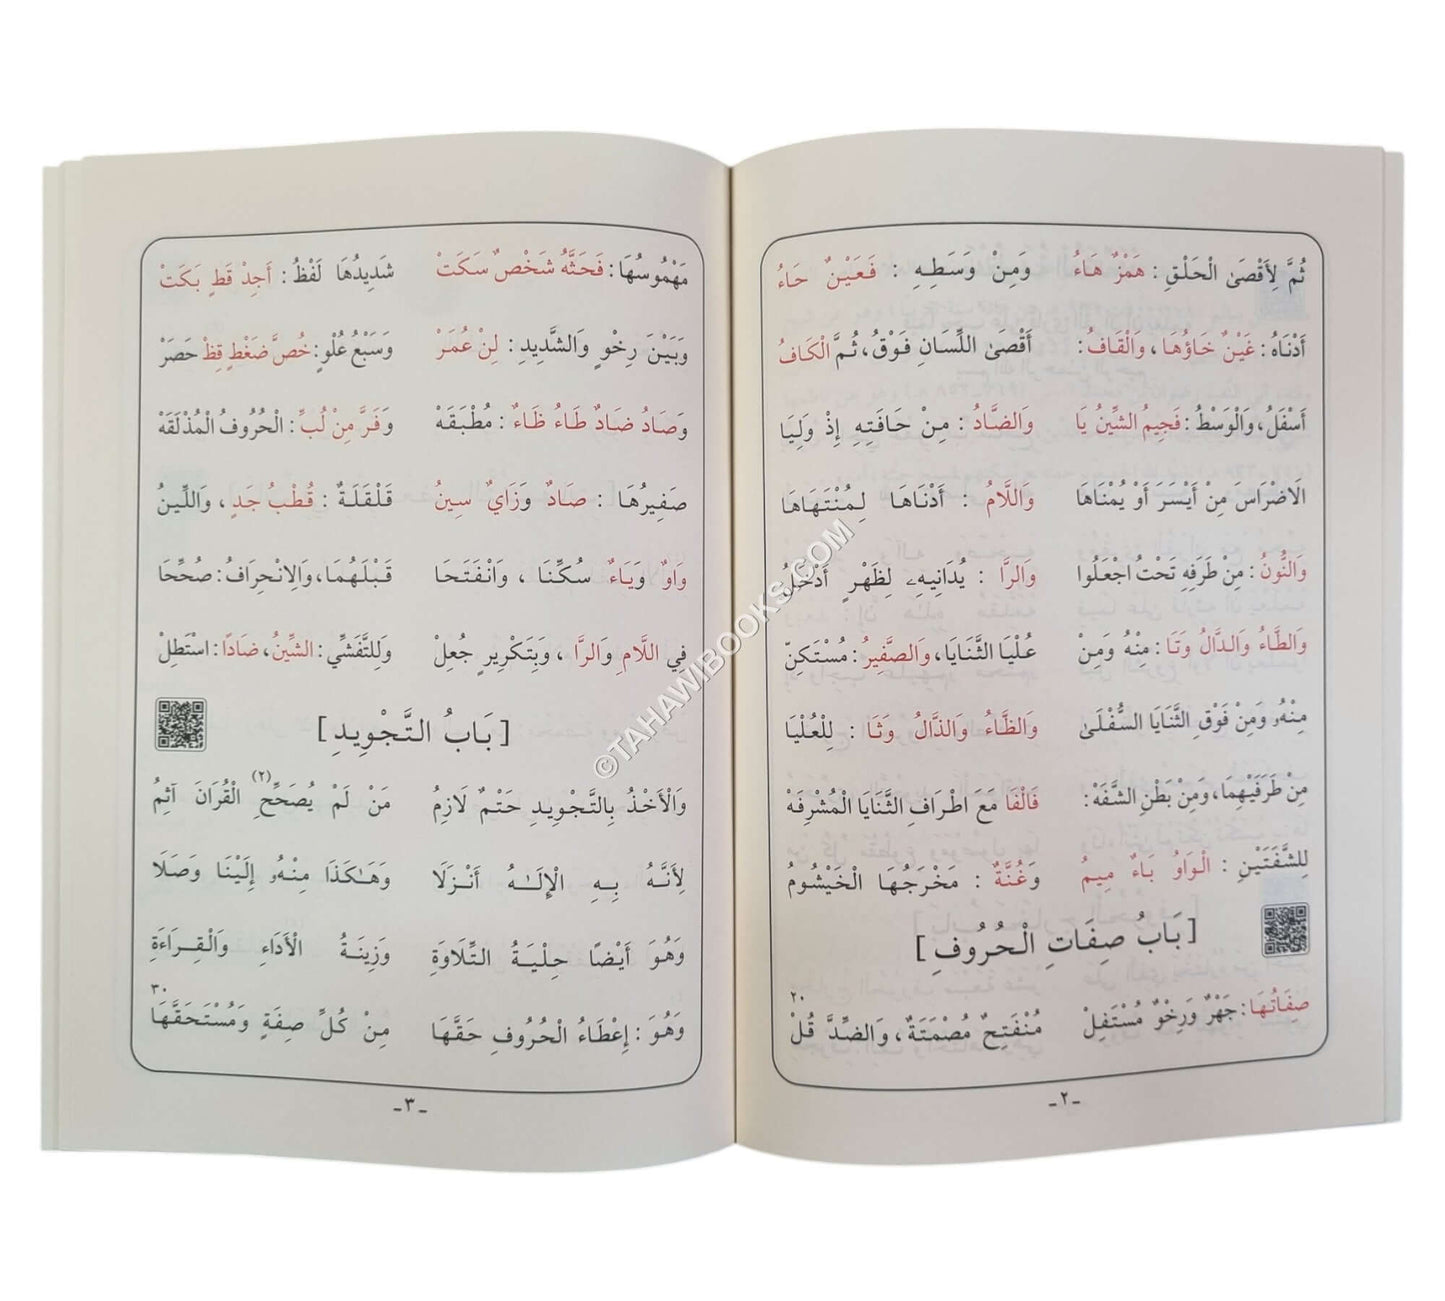 ثُمَّ لِأَقْصَى الْحَلْقِ : هَمْزٌ هَاءُ وَمِنْ وَسَطِهِ : فَعَيْنٌ حَاءُ
أَدْنَاهُ : غَيْنٌ خَاؤُهَا ، وَالْقَافُ : أَقْصَى اللِّسَانِ فَوْقُ ، ثُمَّ الْكَافُ
أَسْفَلُ ، وَالْوَسْطُ : فَجِيمُ الشِّينُ يَا وَالضَّادُ : مِنْ حَافَتِهِ إِذْ وَلِيَا
الَاضْرَاسَ مِنْ أَيْسَرَ أَوْ يُمْنَاهَا وَاللَّامُ : أَدْنَاهَا لِمُنْتَهَاهَا
وَالنُّونُ : مِنْ طَرَفِهِ تَحْتُ اجْعَلُوا وَالرَّا : يُدَانِيهِ لِظَهْرٍ أَدْخَلُ
وَالطَّاءُ وَالدَّالُ وَتَا : مِنْهُ وَمِنْ عُلْيَا الثَّنَايَا، وَالصَّفِيرُ : مُسْتَكِنّْ
مِنْهُ وَمِنْ فَوْقِ الثَّنَايَا السُّفْلَى وَالظَّاءُ وَالذَّالُ وَثَا : لِلْعُلْيَا
مِنْ طَرَفَيْهِمَا، وَمِنْ بَطْنِ الشَّفَهْ : فَالْفَا مَعَ اطْرَافِ الثَّنَايَا الْمُشْرِفَهْ
لِلشَّفَتَيْنِ : الْوَاوُ بَاءٌ مِيمُ وَغُنَّةٌ : مَخْرَجُهَا الْخَيْشُومُ
[ بَابُ صِفَاتِ الْحُرُوفِ ]
صِفَاتُهَا : جَهْرٌ وَرِخْوٌ مُسْتَفِلْ مُنْفَتِحٌ مُصْمَتَةٌ ، وَالضِّدَّ قُلْ ٢٠
-٢-
مَهْمُوسُهَا : فَحَثَّهُ شَخْصٌ سَكَتْ شَدِيدُهَا لَفْظُ : أَجِدْ قَطٍ بَكَتْ
وَبَيْنَ رِخْوٍ وَالشَّدِيدِ : لِنْ عُمَرْ وَسَبْعُ عُلْوٍ : خُصَّ ضَغْطٍ قِظْ حَصَرْ
وَصَادُ ضَادٌ طَاءُ ظَاءٌ : مُطْبَقَهْ وَفَرَّ مِنْ لُبِّ : الْحُرُوفُ الْمُذْلَقَهْ
صَفِيرُهَا : صَادٌ وَزَايٌ سِينُ قَلْقَلَةٌ : قُطْبُ جَدٍ ، وَاللِّينُ
وَاوٌ وَيَاءٌ سُكِّنَا ، وَانْفَتَحَا قَبْلَهُمَا، وَالِانْحِرَافُ : صُحِّحَا
فِي اللَّامِ وَالرَّا ، وَبِتَكْرِيرٍ جُعِلْ وَلِلتَّفَشِّي : الشِّينُ، ضَادًا : اسْتَطِلْ
[ بَابُ التَّجْوِيدِ ]
وَالْأَخْذُ بِالتَّجْوِيدِ حَتْمٌ لَازِمُ مَنْ لَمْ يُصَحِّحِ (٢) الْقُرَانَ آثِمُ
لِأَنَّهُ بِهِ الْإِلَٰهُ أَنْزَلَا وَهَٰكَذَا مِنْهُ إِلَيْنَا وَصَلَا
وَهُوَ أَيْضًا حِلْيَةُ التِّلَاوَةِ وَزِينَةُ الْأَدَاءِ وَالْقِرَاءَةِ
وَهُوَ : إِعْطَاءُ الْحُرُوفِ حَقَّهَا مِنْ كُلِّ صِفَةٍ وَمُسْتَحَقَّهَا ٣٠
-٣-
©TAHAWIBOOKS.COM